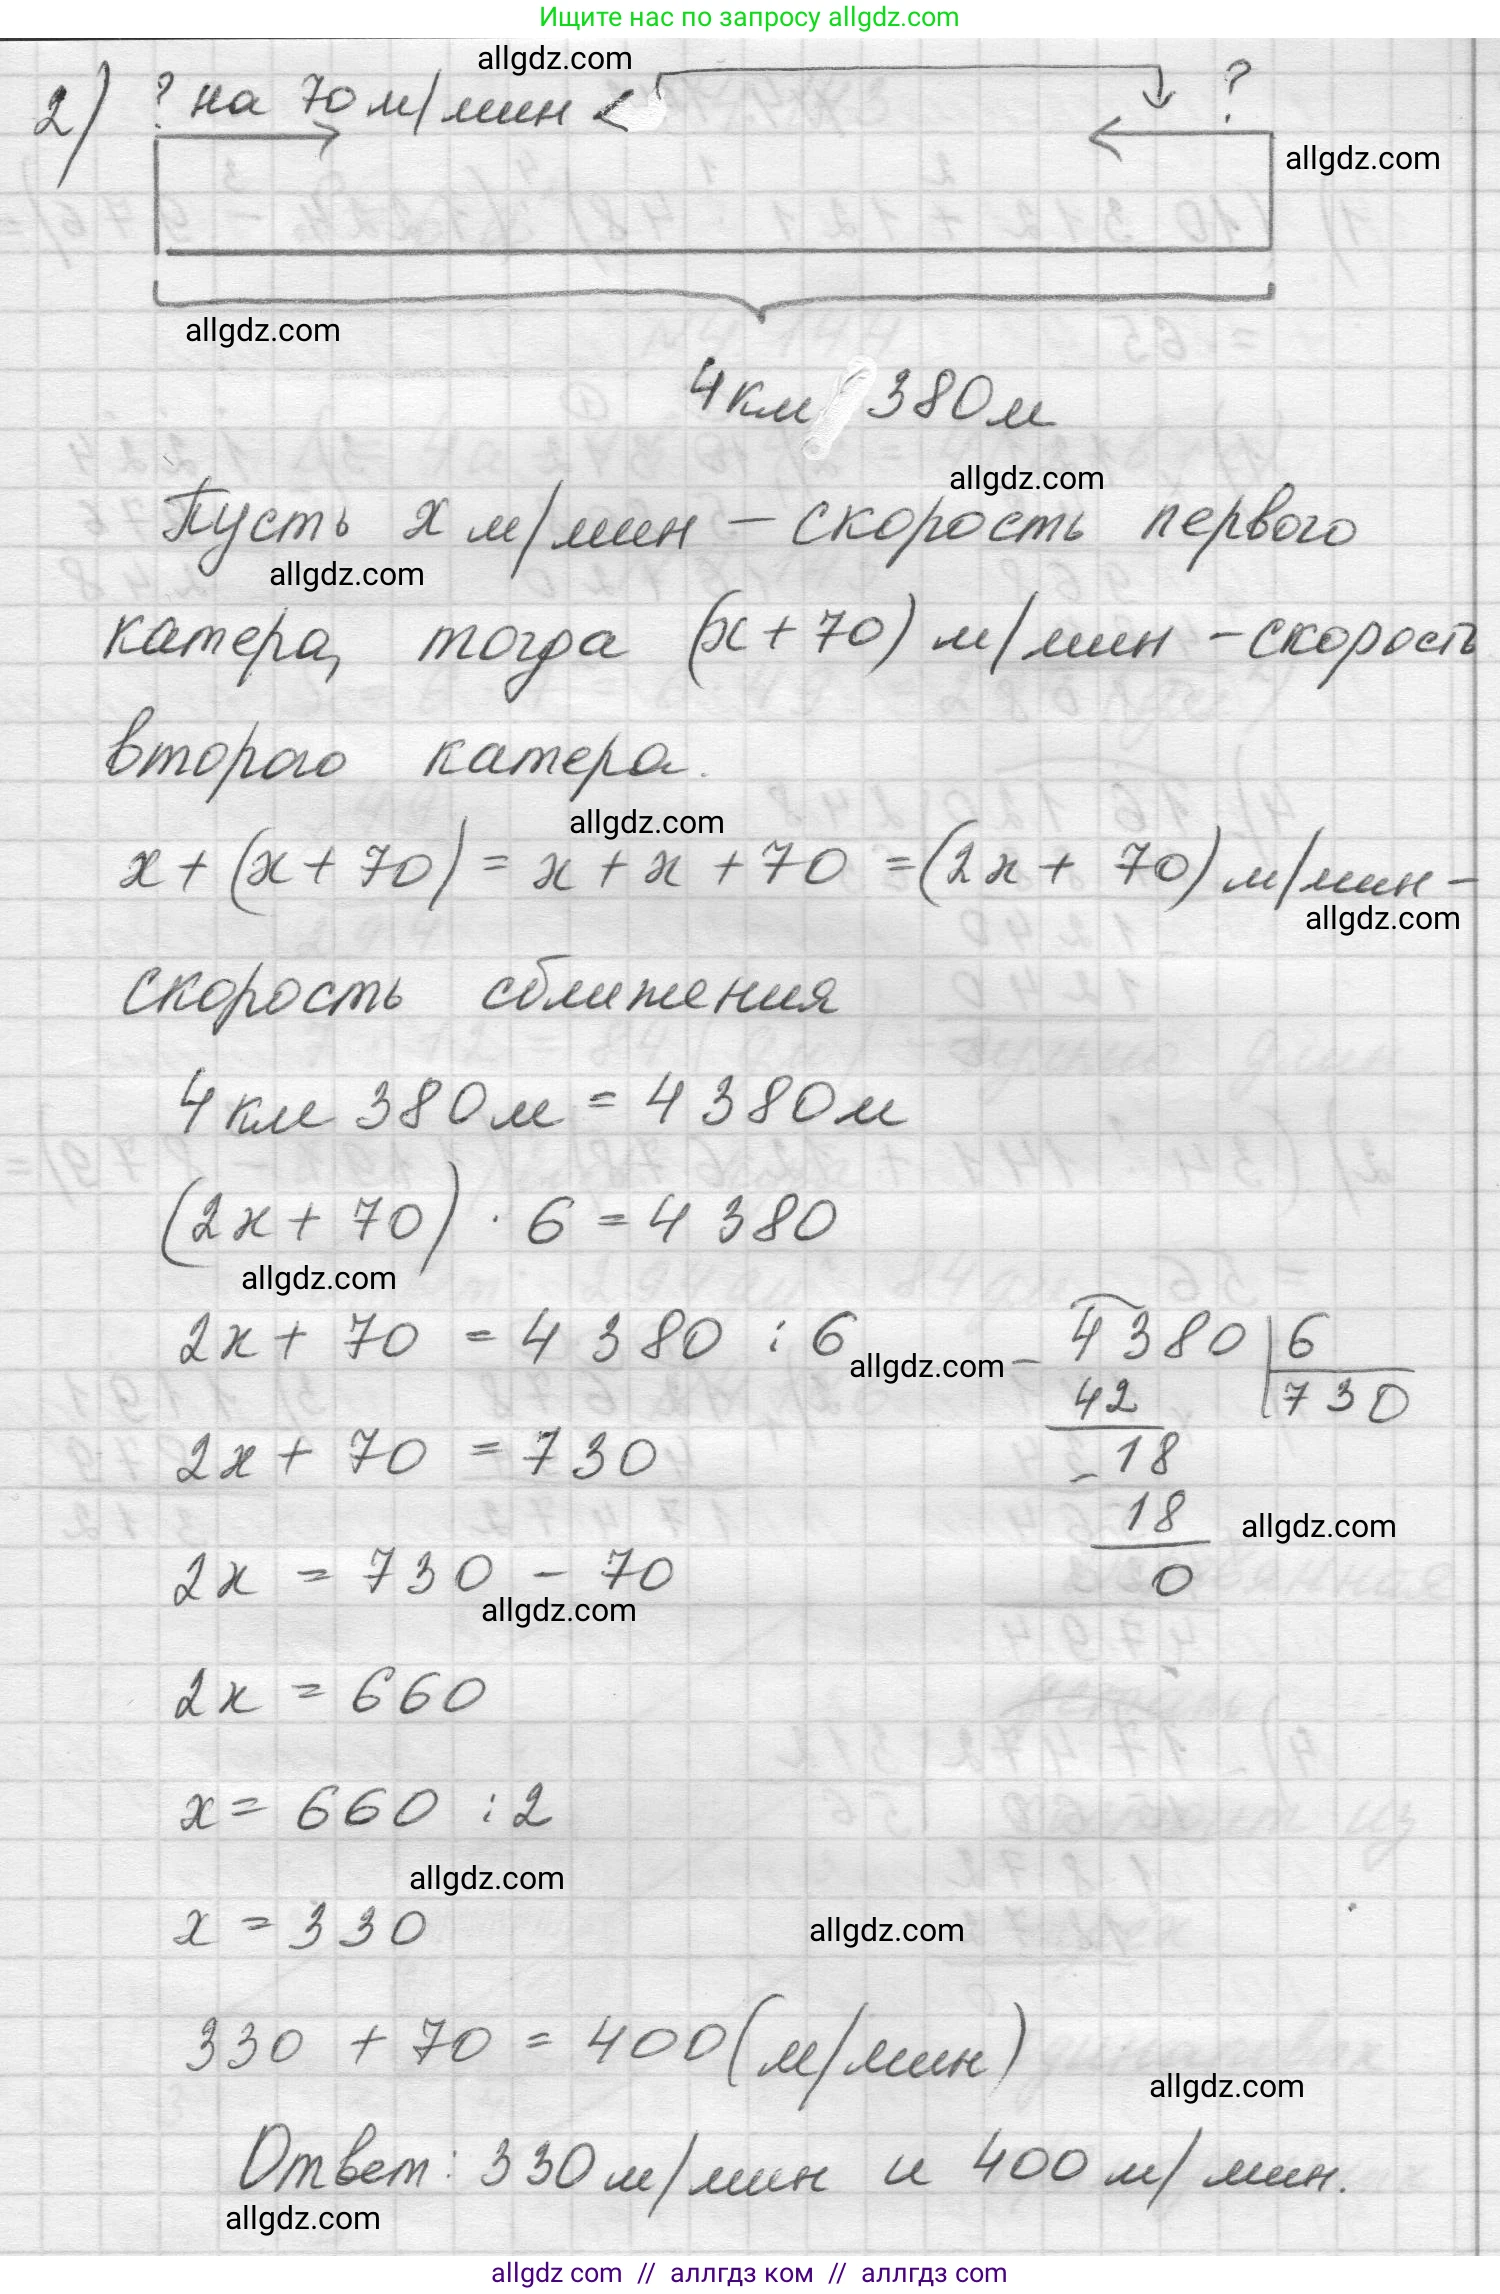 Ищите нас по запросу allgdz.com
allgdz.com
2) ? на 70 м/мин < ?
allgdz.com
allgdz.com
4 км 380 м
allgdz.com
Пусть x м/мин – скорость первого
allgdz.com
катера, тогда (x + 70) м/мин – скорость
второго катера.
allgdz.com
x + (x + 70) = x + x + 70 = (2x + 70) м/мин –
allgdz.com
скорость сближения
4 км 380 м = 4 380 м
(2x + 70) · 6 = 4 380
allgdz.com
2x + 70 = 4 380 : 6
allgdz.com
– 4380 | 6
42 730
2x + 70 = 730
– 18
18
allgdz.com
0
2x = 730 – 70
allgdz.com
2x = 660
x = 660 : 2
allgdz.com
x = 330
allgdz.com
330 + 70 = 400 (м/мин)
allgdz.com
Ответ: 330 м/мин и 400 м/мин.
allgdz.com
allgdz com // аллгдз ком // аллгдз com